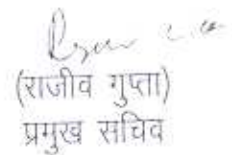 (राजीव गुप्ता)
प्रमुख सचिव